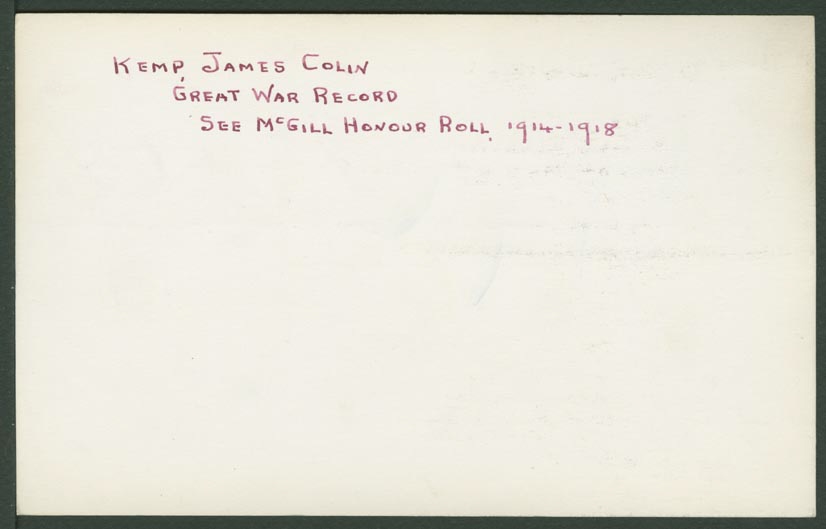 Kemp, James Colin
Great War Record
See McGill Honour Roll, 1914-1918